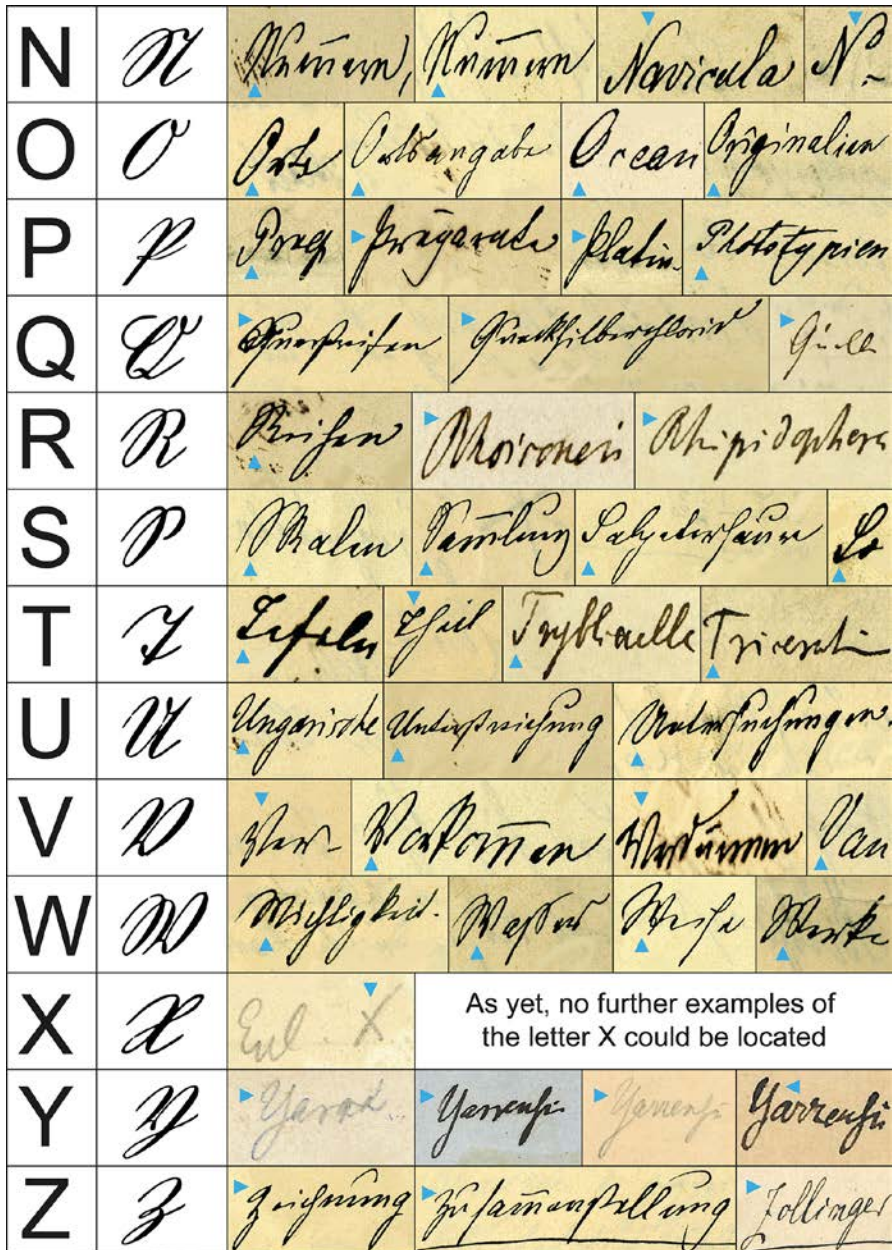 N N Num̄ern, Num̄ern Navicula No
O O Orte Ortsangabe Ocean Originalien
P P Präp Präparate Platin- Phototypien
Q Q Querstreifen Quecksilberchlorid Quelle
R R Reihen Rhoiconeis Rhipidophora
S S Skalen Sam̄lung Salpetersäure So
T T Tafeln Theil Tricerati
U U Ungarische Unterstreichung Untersuchungen.
V V Ver- Vorkom̄en Verdünnen Van
W W Wichtigkeit. Wasser Weise Werke
X X Eul. X As yet, no further examples of
the letter X could be located
Y Y Yarrensi Yarrensi Yarrensi
Z Z Zeichnung Zusam̄enstellung Zollinger